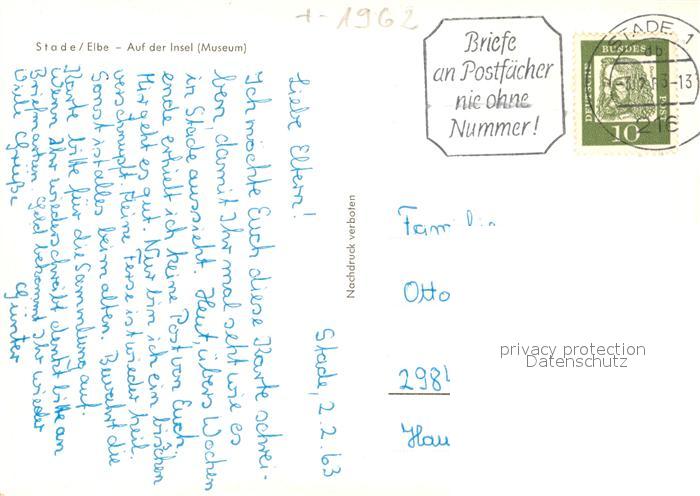 + - 1962
Stade/Elbe – Auf der Insel (Museum)
Briefe
an Postfächer
nie ohne
Nummer!
STADE 1
DEUTSCHE BUNDESPOST
10
216
Stade, 2.2.63
Liebe Eltern!
Ich möchte Euch diese Karte schrei-
ben, damit Ihr mal seht wie es
in Stade aussieht. Heut, übers Wochen
ende erhielt ich keine Post von Euch.
Mir geht es gut. Nur bin ich ein bischen
verschnupft. Meine Ferse ist wieder heil.
Sonst ist alles beim alten. Bewahrt die
Karte bitte für die Sammlung auf.
Wenn Ihr wiederschreibt denkt bitte an
Briefmarken. Geld bekommt Ihr wieder
Viele Grüße
Günter
Nachdruck verboten
Familie
Otto
2981
Hau
privacy protection
Datenschutz